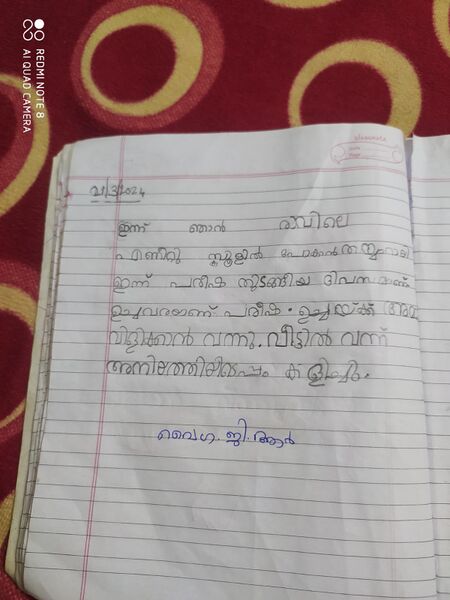 REDMI NOTE 8
AI QUAD CAMERA
classmate
Date
Page
ഇന്ന് ഞാൻ രാവിലെ
എണീറ്റു സ്കൂളിൽ പോകാൻ തയ്യാറായി
ഇന്ന് പരീഷ തുടങ്ങിയ ദിവസമാണ്
ഉച്ചവരയാണ് പരീഷ. ഉച്ചയ്ക്ക് അമ്മ
വിളിക്കാൻ വന്നു. വീട്ടിൽ വന്ന്
അനിയത്തിയിടൊപ്പം കളിച്ചു.
വൈഗ. ജി. ആർ